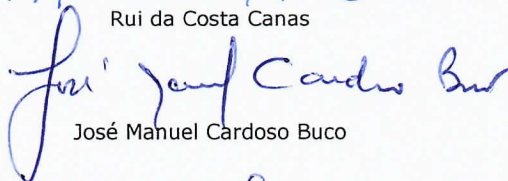 Rui da Costa Canas
José Manuel Cardoso Buco
José Manuel Cardoso Buco